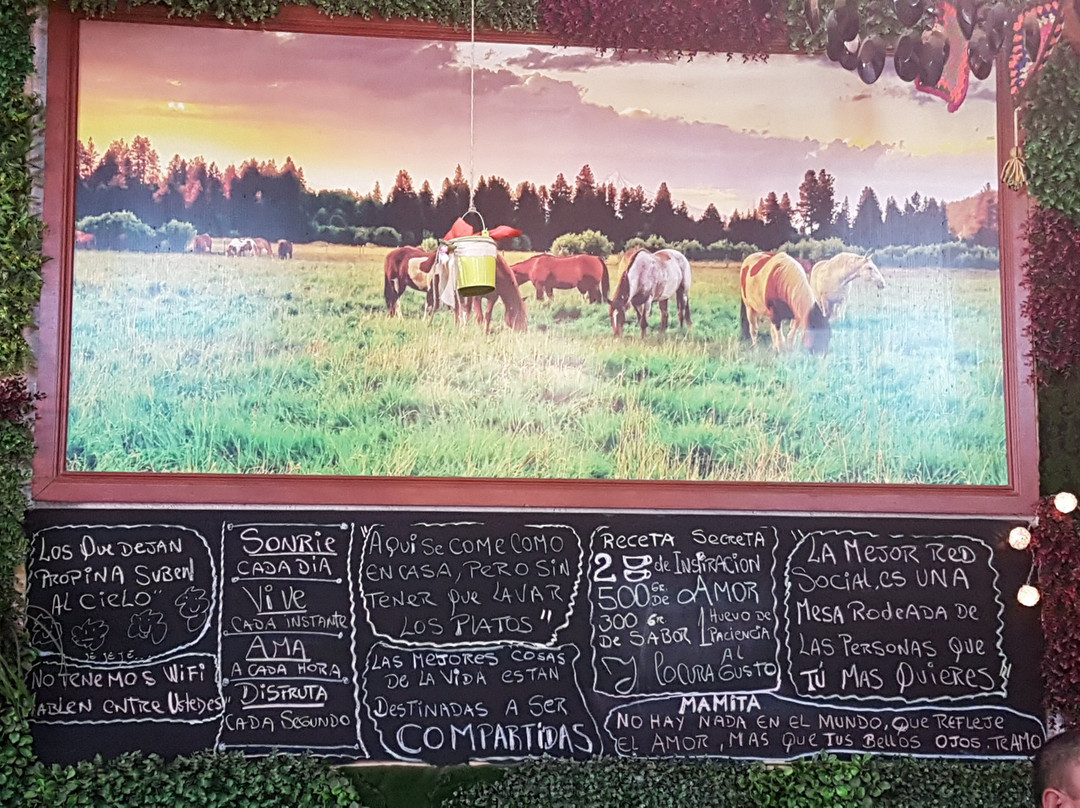 "LOS QUE DEJAN
PROPINA SUBEN
AL CIELO"
JE JE JE..
NO TENEMOS WIFI
HABLEN ENTRE USTEDES
SONRIE
CADA DIA
VIVE
CADA INSTANTE
AMA
A CADA HORA
DISFRUTA
CADA SEGUNDO
"AQUI SE COME COMO
EN CASA, PERO SIN
TENER QUE LAVAR
LOS PLATOS"
LAS MEJORES COSAS
DE LA VIDA ESTAN
DESTINADAS A SER
COMPARTIDAS
RECETA SECRETA
2 de INSPIRACION
500 GR. DE AMOR
300 GR DE SABOR 1 HUEVO DE PACIENCIA
Y LOCURA AL GUSTO
"LA MEJOR RED
SOCIAL, ES UNA
MESA RODEADA DE
LAS PERSONAS QUE
TÚ MAS QUIERES"
MAMITA
NO HAY NADA EN EL MUNDO, QUE REFLEJE
EL AMOR, MAS QUE TUS BELLOS OJOS. TE AMO